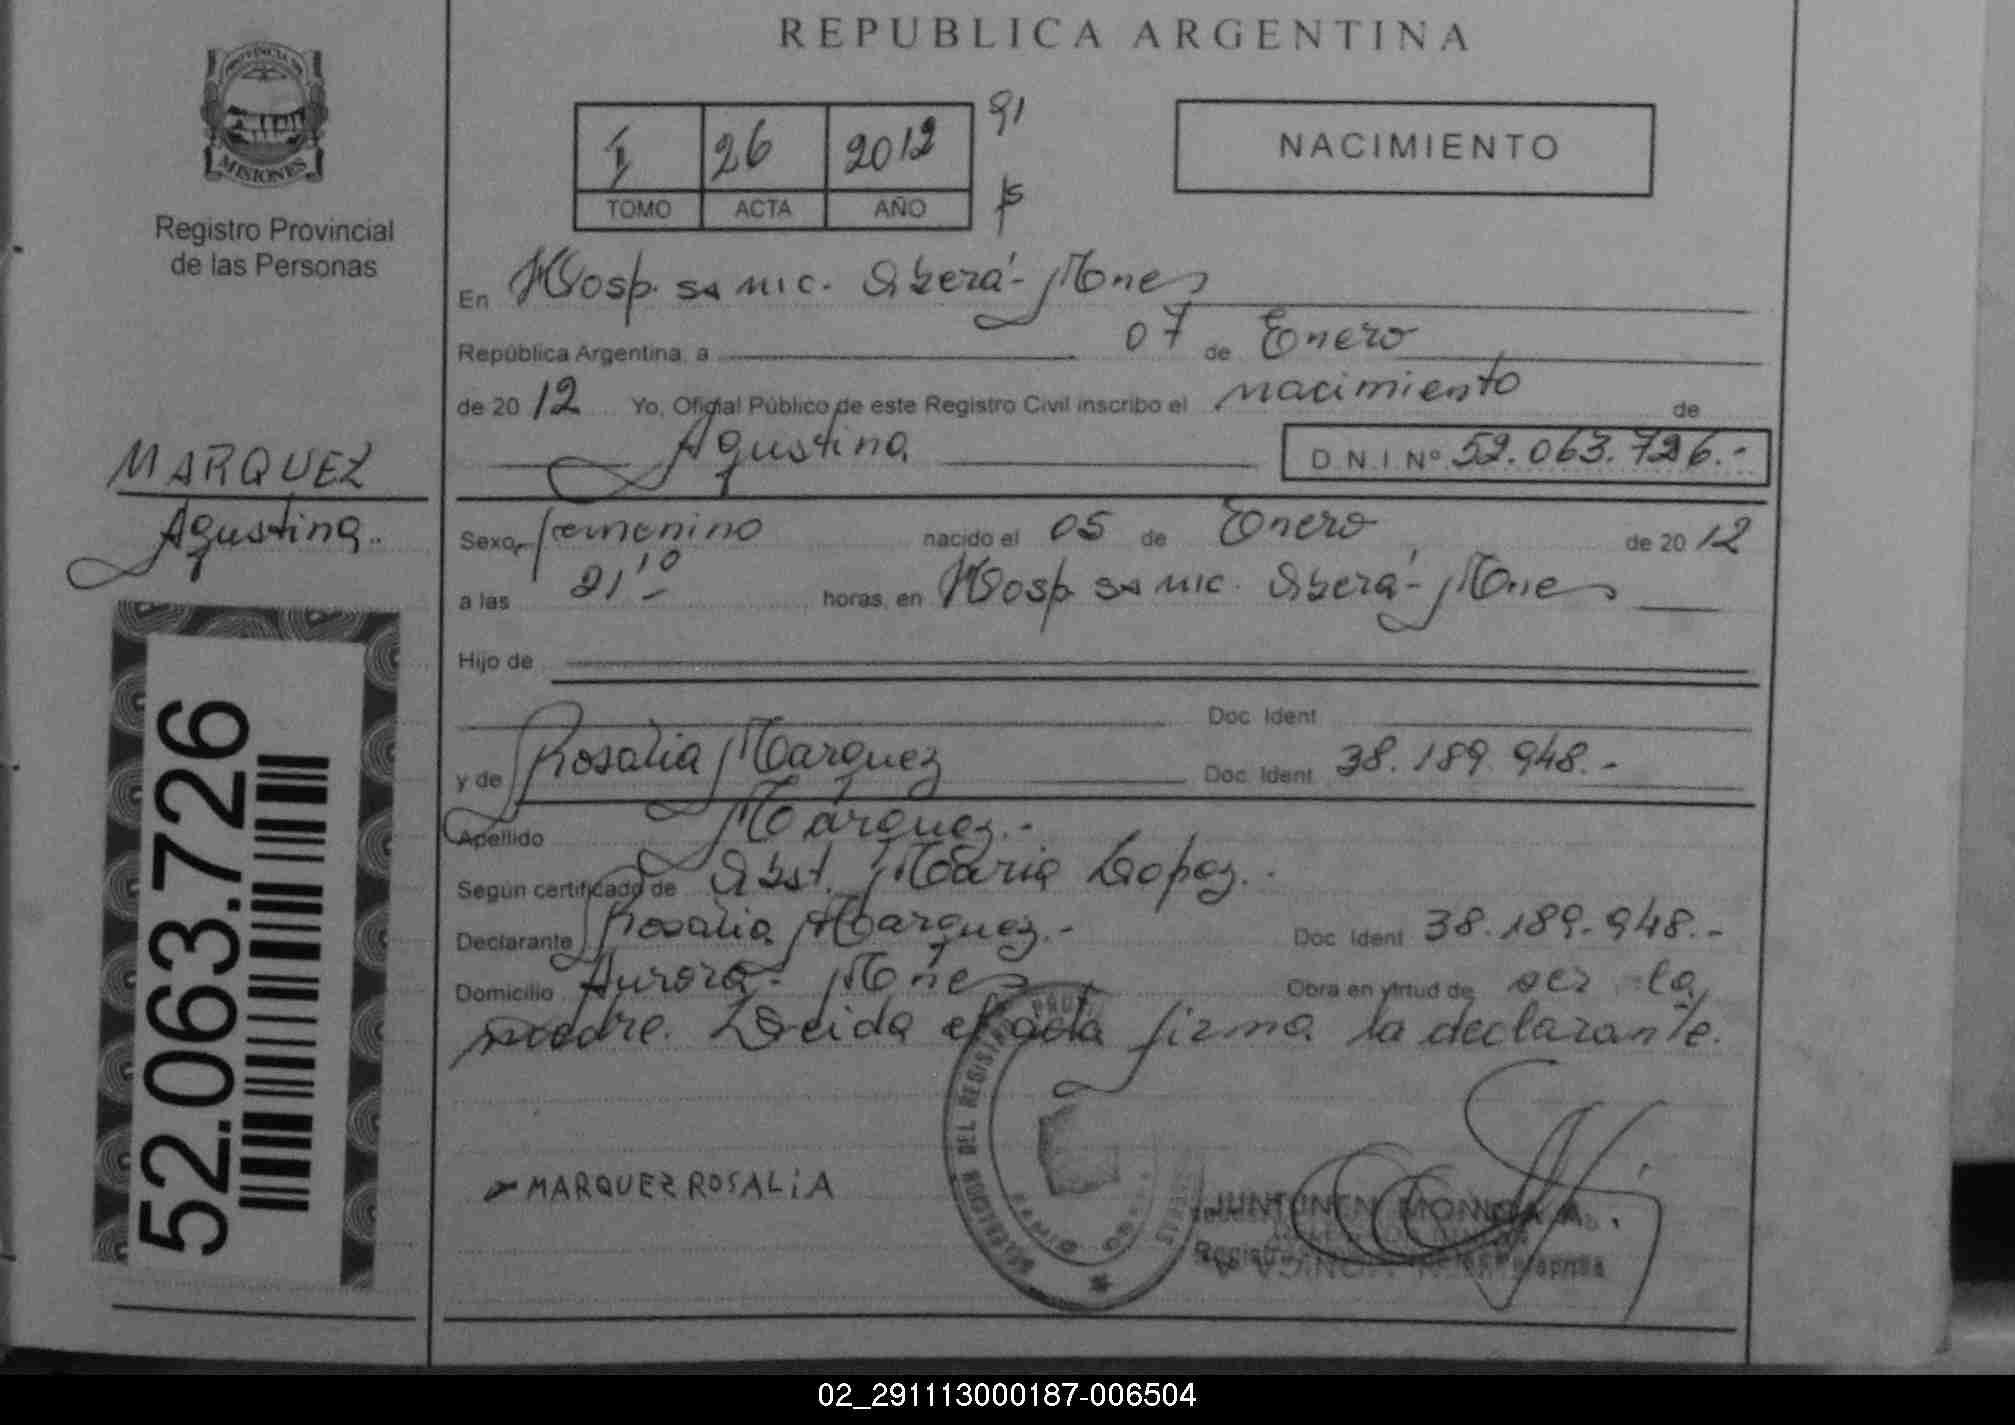 REPUBLICA ARGENTINA
PROVINCIA DE
MISIONES
Registro Provincial
de las Personas
I 26 2012
TOMO ACTA AÑO
NACIMIENTO
En Hosp. SAMIC. Oberá - Mnes
República Argentina, a 07 de Enero
de 2012 Yo, Oficial Público de este Registro Civil inscribo el nacimiento de
Agustina D.N.I Nº 52.063.726.-
MARQUEZ
Agustina.
Sexo femenino nacido el 05 de Enero de 2012
a las 21'10 horas, en Hosp SAMIC. Oberá - Mnes
Hijo de
Doc. Ident
y de Rosalia Marquez Doc. Ident 38.189.948.-
Apellido Marquez.-
Según certificado de Obst. Maria Lopez.
Declarante Rosalia Marquez.- Doc Ident 38.189.948.-
Domicilio Aurora - Mnes Obra en virtud de ser la
madre. Leida el acta firma la declarante.
52.063.726
MARQUEZ ROSALiA
DEL REGISTRO
JUNTUNEN MONICA A.
02_291113000187-006504